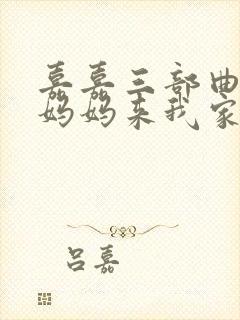 嘉嘉三部曲
妈妈来我家
吕嘉